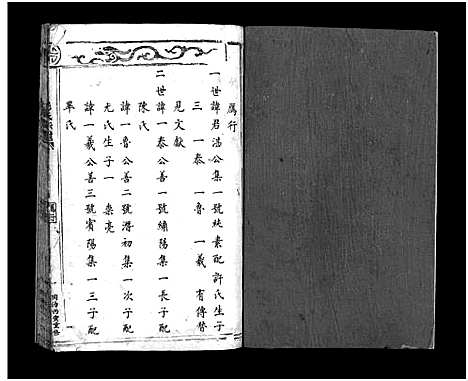 厲行
一世諱君浩公集一號純素配許氏生子
三 一泰 一魯 一義 有傳贊
見文獻
二世諱一泰公善一號繡陽集一長子配
陳氏
諱一魯公善二號濟初集一次子配
尤氏生子一 崇亮
諱一義公善三號賓陽集一三子配
畢氏